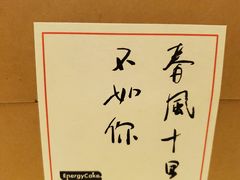 春風十里
不如你
EnergyCake